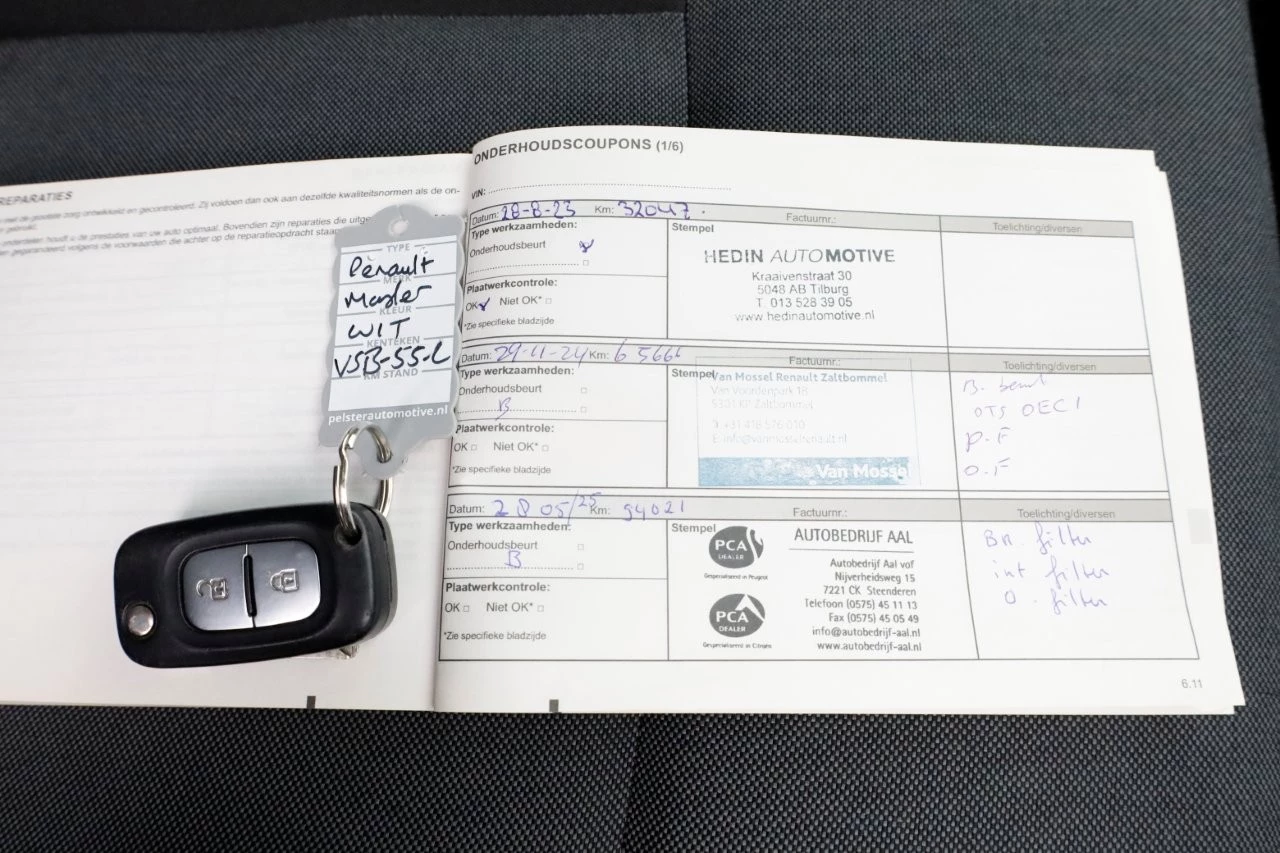 REPARATIES
met de grootste zorg ontwikkeld en gecontroleerd. Zij voldoen dan ook aan dezelfde kwaliteitsnormen als de on-
gebruikt.
onderdelen houdt u de prestaties van uw auto optimaal. Bovendien zijn reparaties die
gegarandeerd volgens de voorwaarden die achter op de reparatieopdracht staan
TYPE
Renault
MERK
Master
KLEUR
WIT
KENTEKEN
VSB-55-L
KM STAND
pelsterautomotive.nl
ONDERHOUDSCOUPONS (1/6)
VIN:
Datum: 28-8-23 Km: 32047. Factuurnr.: Toelichting/diversen
Type werkzaamheden:
Onderhoudsbeurt
Plaatwerkcontrole:
OK Niet OK*
*Zie specifieke bladzijde
Stempel
HEDIN AUTOMOTIVE
Kraaivenstraat 30
5048 AB Tilburg
T. 013 528 39 05
www.hedinautomotive.nl
Datum: 29-11-24 Km: Factuurnr.: Toelichting/diversen
Type werkzaamheden:
Onderhoudsbeurt
B
Plaatwerkcontrole:
OK Niet OK*
*Zie specifieke bladzijde
Stempel
Van Mossel Renault Zaltbommel
Van Voordenpark 18
5301 KP Zaltbommel
Van Mossel
B. beurt
OTS OEC1
P.F
O.F
Datum: 28 05/25 Km: 94021 Factuurnr.: Toelichting/diversen
Type werkzaamheden:
Onderhoudsbeurt
B
Plaatwerkcontrole:
OK Niet OK*
*Zie specifieke bladzijde
Stempel
PCA
DEALER
Gespecialiseerd in Peugeot
PCA
DEALER
Gespecialiseerd in Citroën
AUTOBEDRIJF AAL
Autobedrijf Aal vof
Nijverheidsweg 15
7221 CK Steenderen
Telefoon (0575) 45 11 13
Fax (0575) 45 05 49
info@autobedrijf-aal.nl
www.autobedrijf-aal.nl
Br. filter
int filter
O. filter
6.11